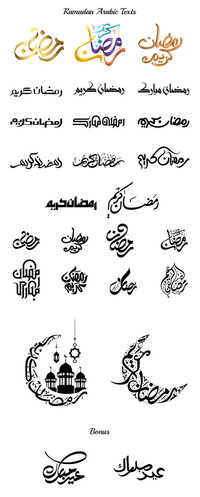 Ramadan Arabic Texts
رمضان كريم رمضان كريم رمضان
رمضان مبارك رمضان كريم رمضان كريم
رمضان كريم رمضان مبارك رمضان كريم
رمضان كريم رمضان كريم رمضان كريم
رمضان كريم رمضان كريم
رمضان كريم رمضان رمضان كريم رمضان
رمضان رمضان كريم رمضان مبارك
رمضان كريم رمضان
Bonus
عيد مبارك عيد مبارك